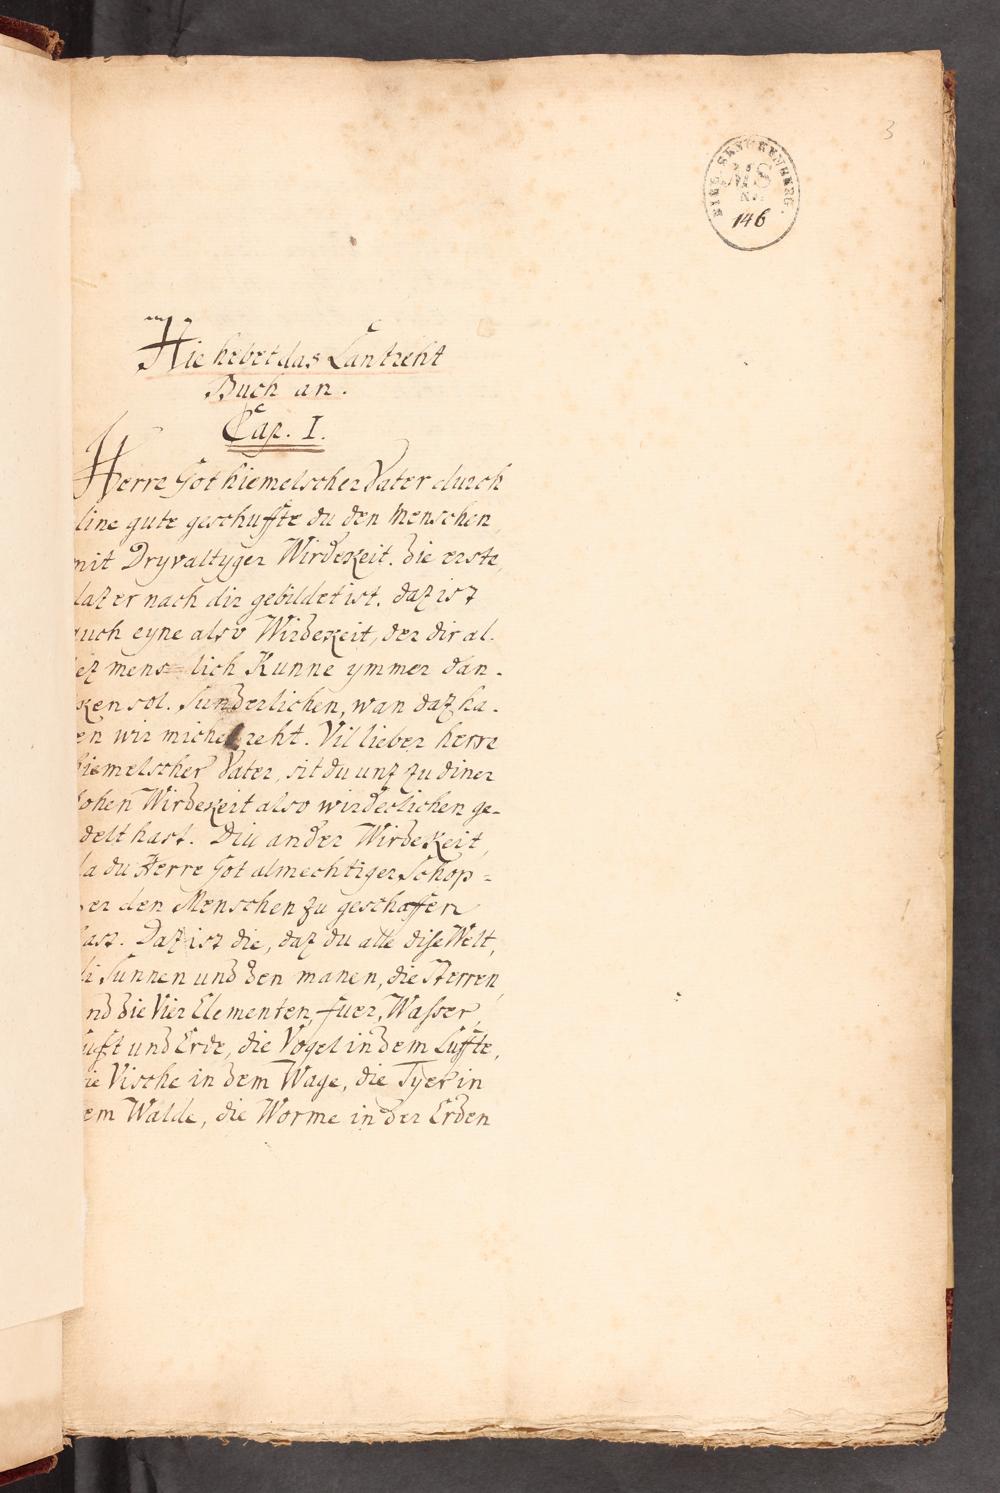 3
BIBL. SENCKENBERG.
MS
No.
146
Hie hebet das Lantreht
Buch an.
Cap. I.
Herre Got hiemelscher Vater durch
dine gute geschuffte du den Menschen
mit Dryvaltyger Wirdekeit. die erste,
daz er nach dir gebildet ist. daz ist
auch eyne also Wirdekeit, der dir al-
lez mens=lich Kunne ymmer dan-
ken sol. Sunderlichen, wan daz ha-
en wir michel reht. Vil lieber herre
hiemelscher Vater, sit du unz zu diner
hohen Wirdekeit also wirdeclichen ge-
delt hast. Diu ander Wirdekeit,
da du Herre Got almechtiger Schop=
er den Menschen zu geschaffen
hast. Daz ist die, daz du alle dise Welt,
di Sunnen und den manen, die Sterren,
nd die Vier Elementen, fuer, Wasser,
Luft und Erde, die Vogel in dem Luffte,
die Vische in dem Wage, die Tyer in
dem Walde, die Worme in der Erden